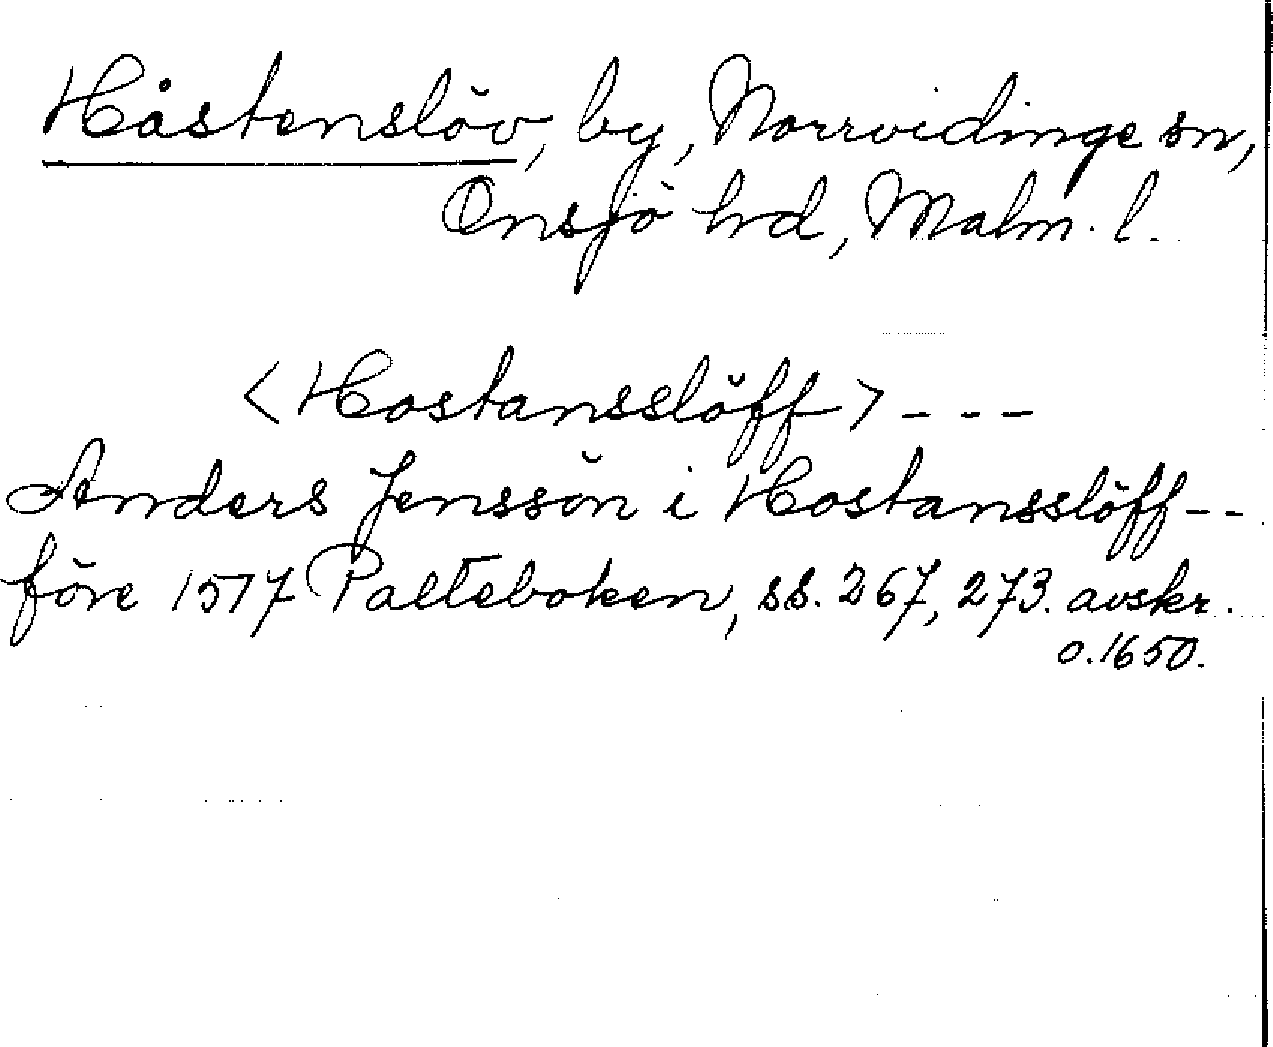 Håstenslöv, by, Norrvidinge sn,
Onsjö hrd, Malm. l.
<Hostansslöff> - - -
Anders Jenssön i Hostansslöff - -
före 1517 Palteboken, ss. 267, 273. avskr.
o. 1650.